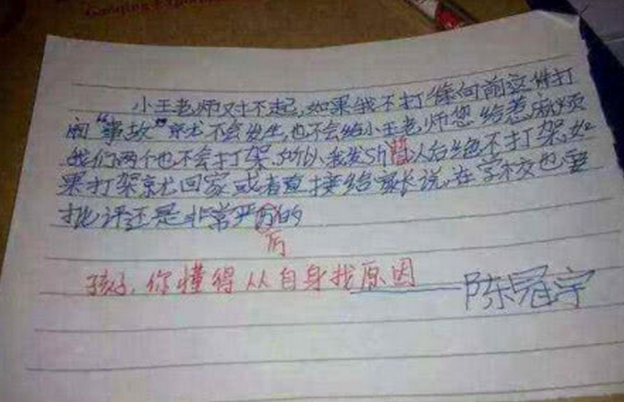 小王老师对不起,如果我不打徐何前这件打
闹“事故”就不会发生,也不会给小王老师您给惹麻烦
我们两个也不会打架,所以我发Sh誓以后绝不打架,如
果打架就回家或者直接给家长说,在学校也要
批评还是非常严厉的
厉
孩子,你懂得从自身找原因
陈冠宇